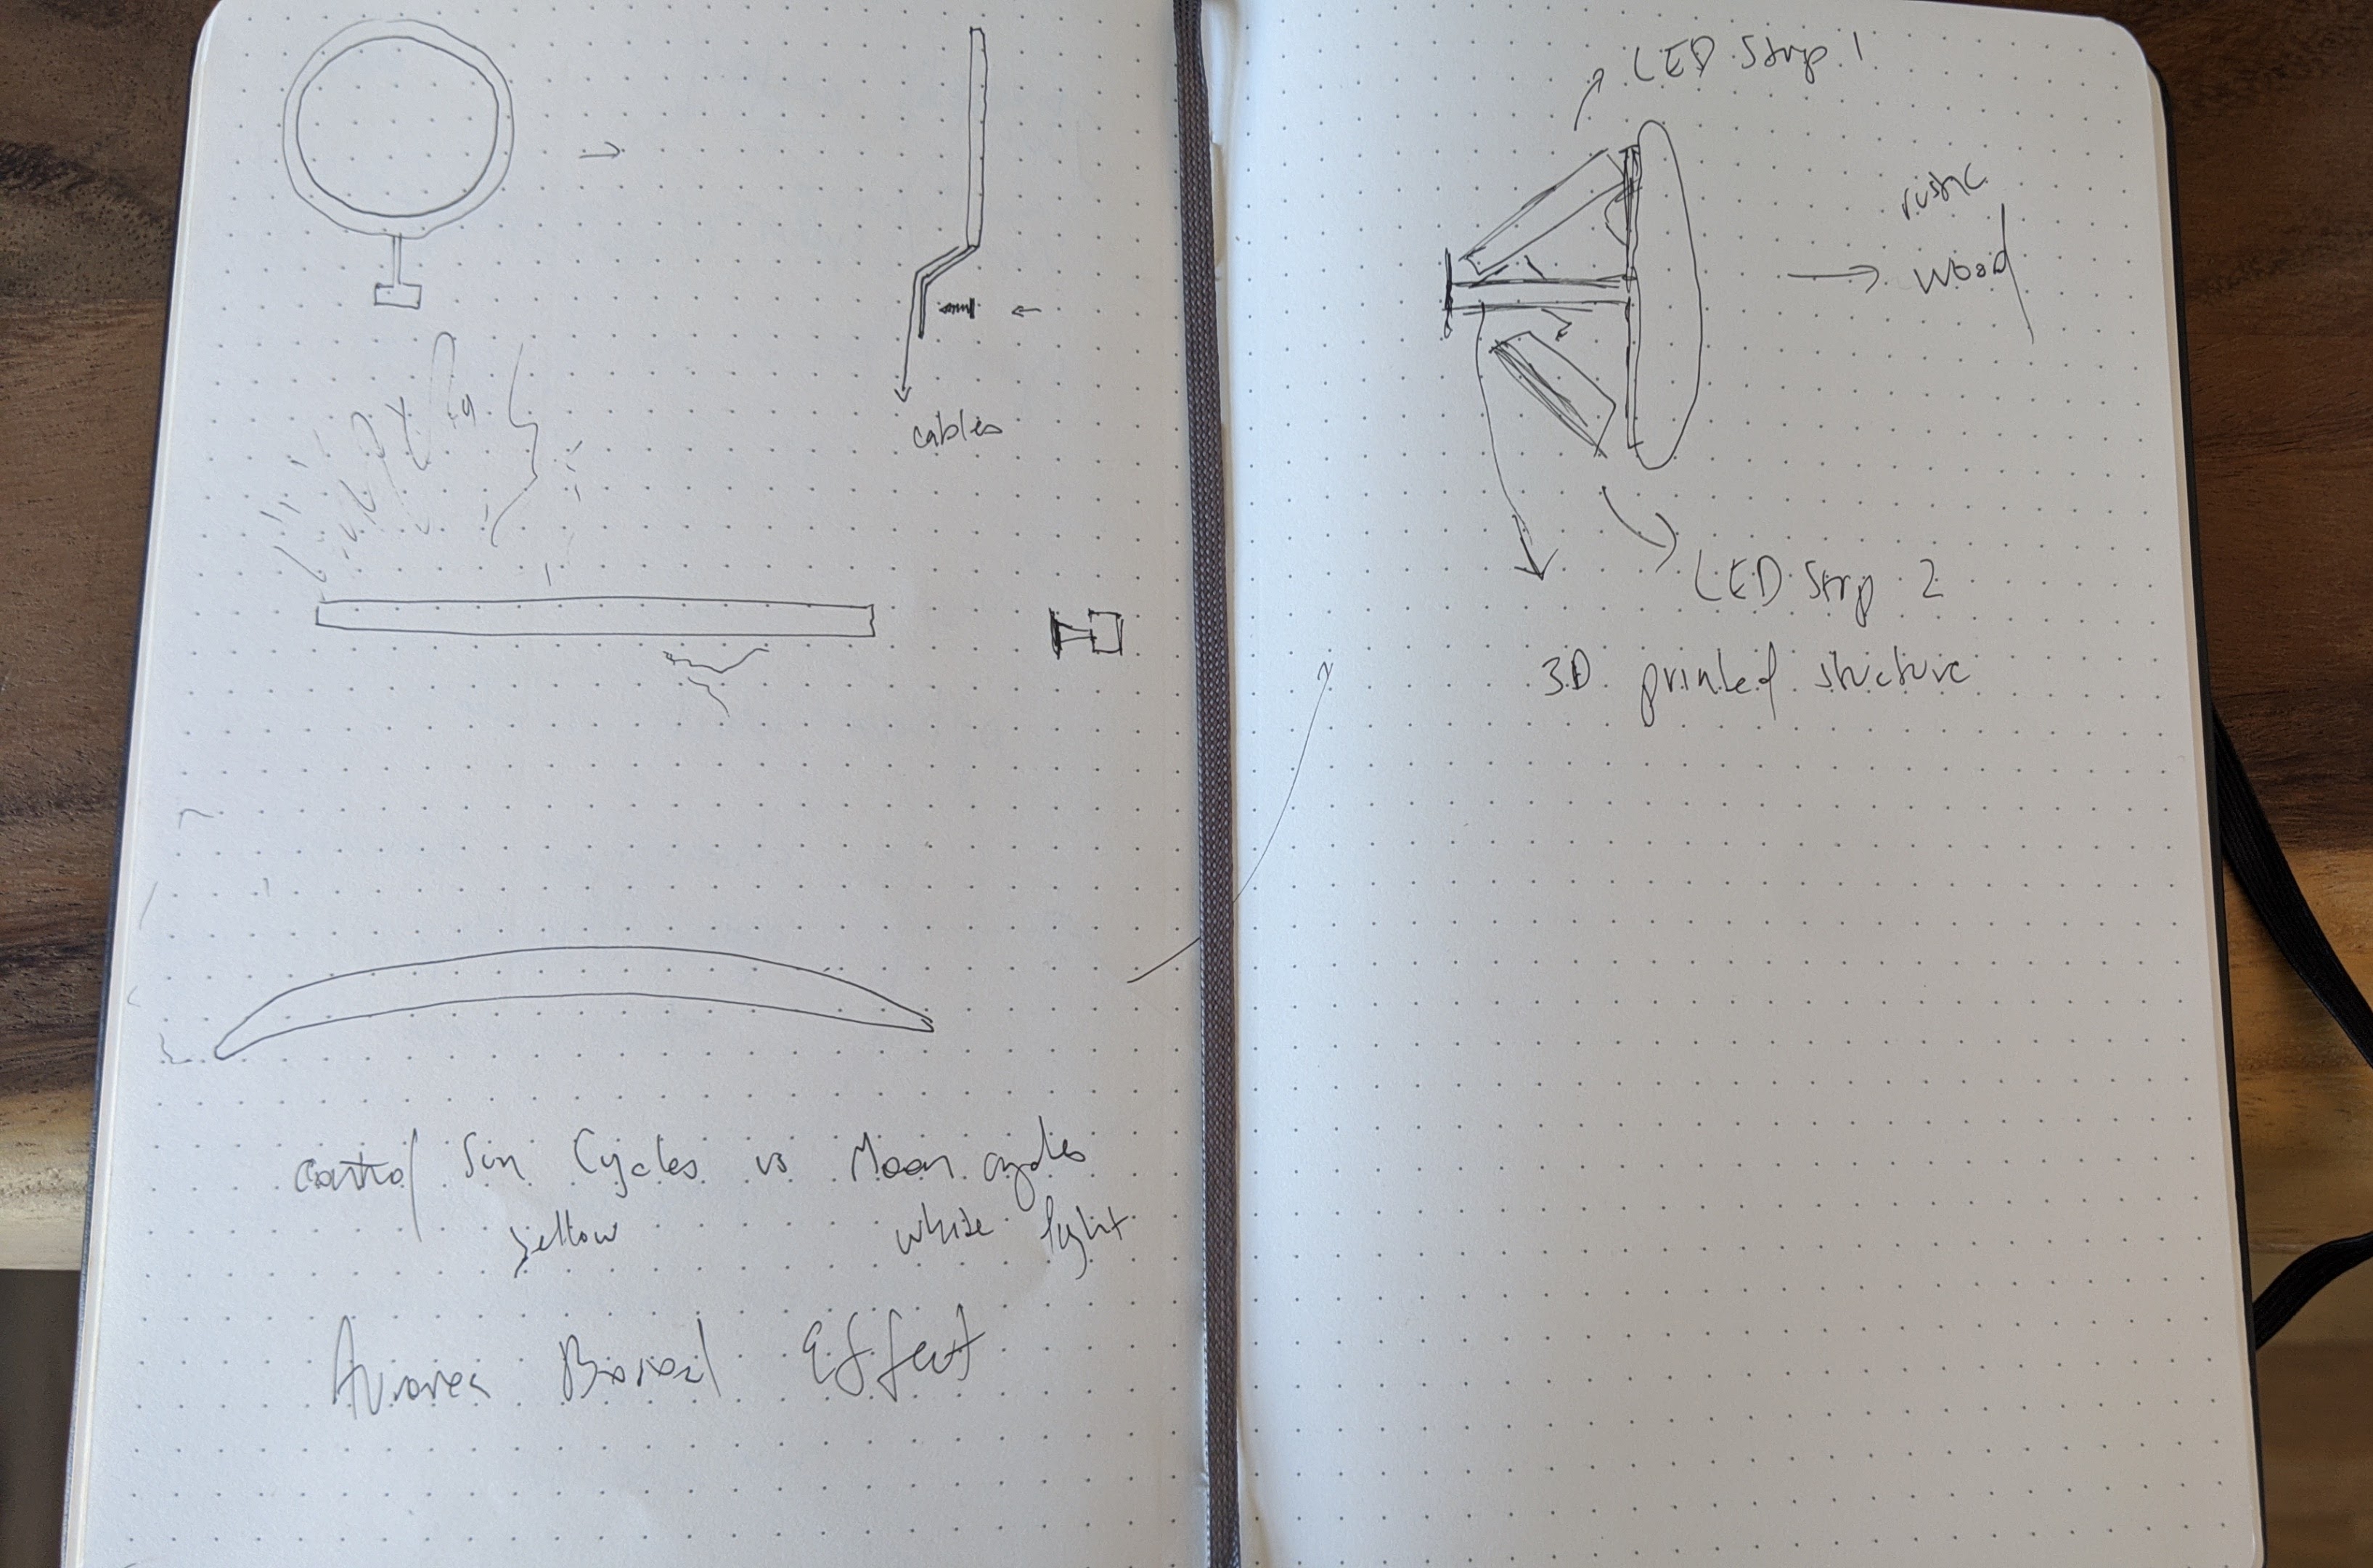 cables
control Sun Cycles vs Moon cycles
yellow white light
Aurorea Boreal Effect
LED Strip 1
rustic
wood
LED Strip 2
3D printed structure